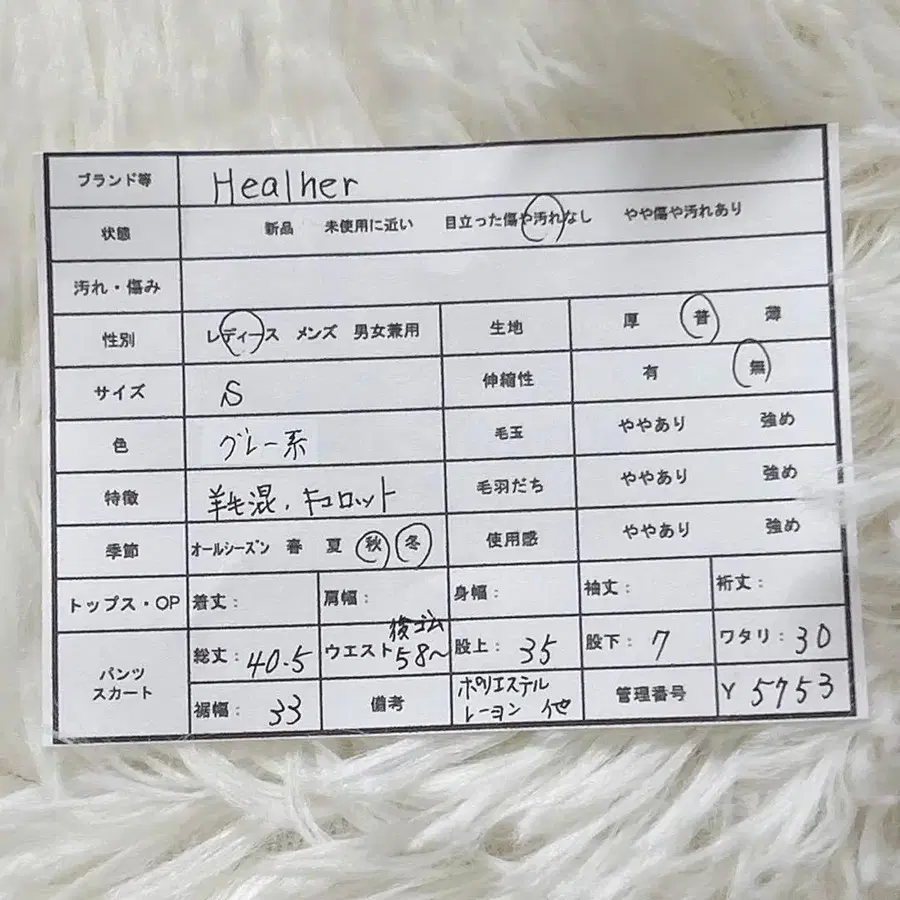 ブランド等 Healher
状態 新品 未使用に近い 目立った傷や汚れなし やや傷や汚れあり
汚れ・傷み
性別 レディース メンズ 男女兼用 生地 厚 普 薄
サイズ S 伸縮性 有 無
色 グレー系 毛玉 ややあり 強め
特徴 羊毛混、キュロット 毛羽だち ややあり 強め
季節 オールシーズン 春 夏 秋 冬 使用感 ややあり 強め
トップス・OP 着丈: 肩幅: 身幅: 袖丈: 裄丈:
パンツ スカート 総丈: 40.5 ウエスト 後ゴム 58〜 股上: 35 股下: 7 ワタリ: 30
裾幅: 33 備考 ポリエステル レーヨン 他 管理番号 Y 5753